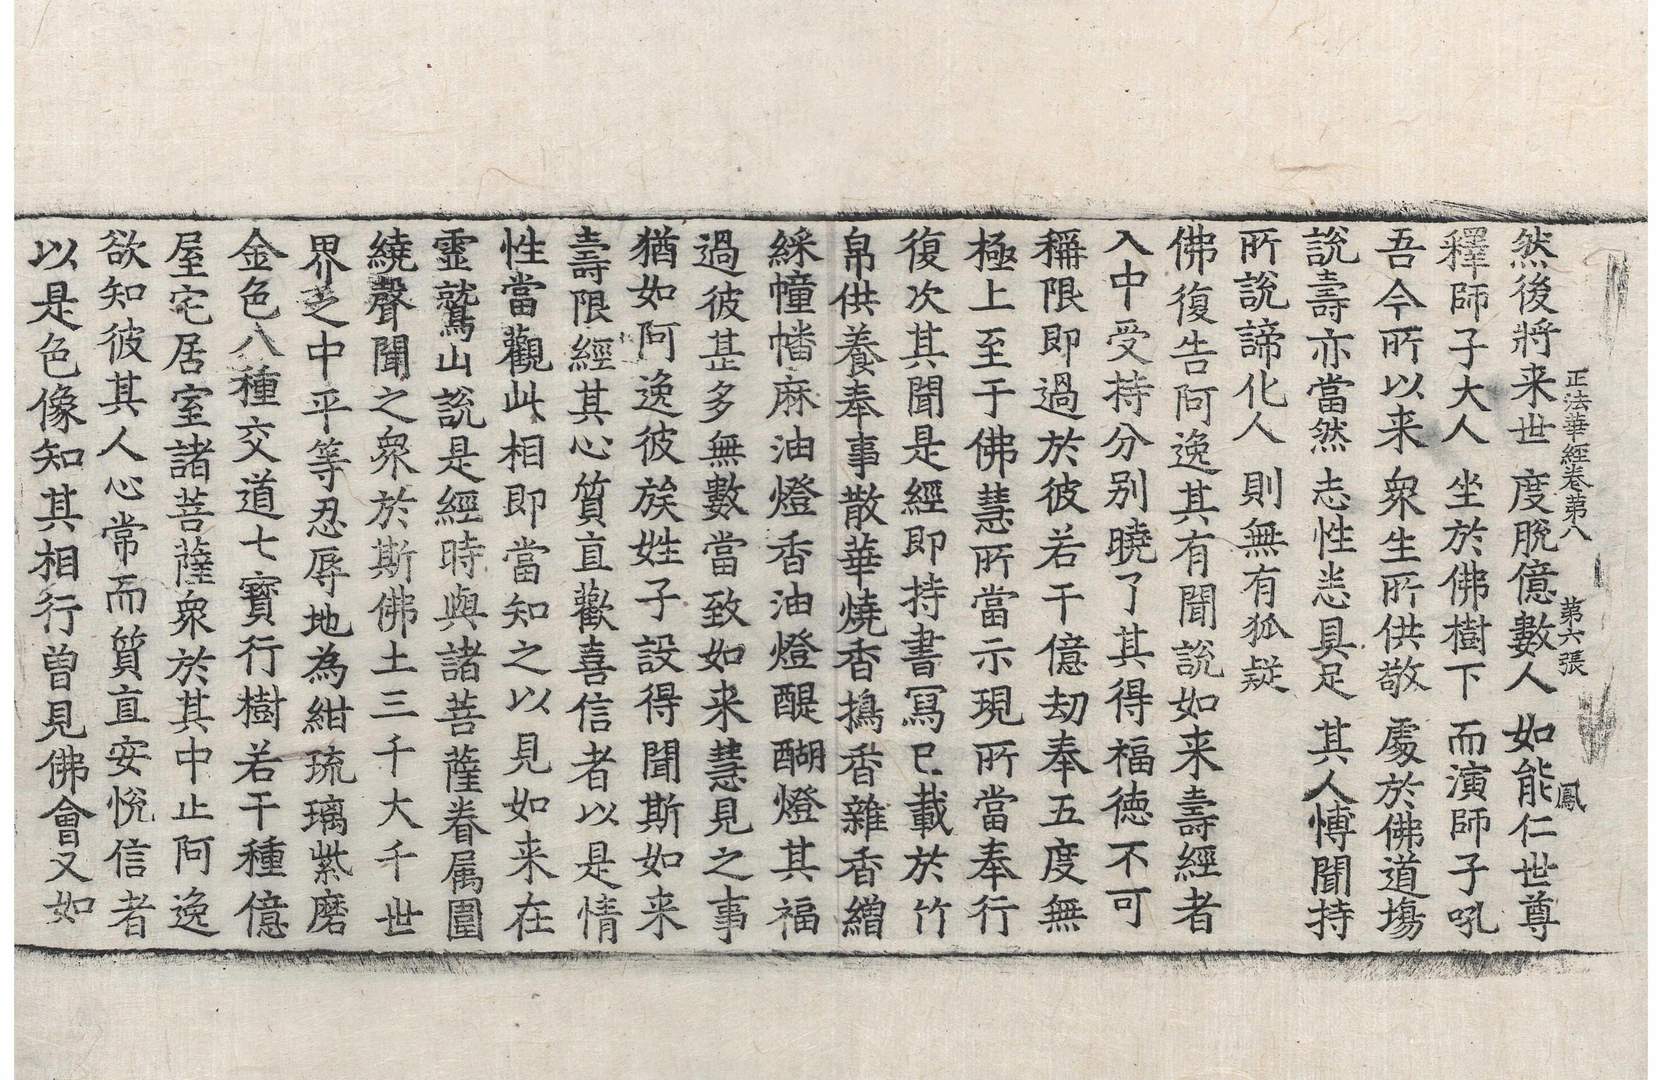 正法華經卷第八 第六張 鳳
然後將来世 度脫億數人 如能仁世尊
釋師子大人 坐於佛樹下 而演師子吼
吾今所以来 衆生所供敬 處於佛道場
說壽亦當然 志性悉具足 其人博聞持
所說諦化人 則無有狐疑
佛復告阿逸其有聞說如来壽經者
入中受持分別曉了其得福德不可
稱限即過於彼若干億劫奉五度無
極上至于佛慧所當示現所當奉行
復次其聞是經即持書寫已載於竹
帛供養奉事散華燒香擣香雜香繒
綵幢幡麻油燈香油燈醍醐燈其福
過彼甚多無數當致如来慧見之事
猶如阿逸彼族姓子設得聞斯如来
壽限經其心質直歡喜信者以是情
性當觀此相即當知之以見如来在
靈鷲山說是經時與諸菩薩眷属圍
繞聲聞之衆於斯佛土三千大千世
界之中平等忍辱地為紺琉璃紫磨
金色八種交道七寶行樹若干種億
屋宅居室諸菩薩衆於其中止阿逸
欲知彼其人心常而質直安悅信者
以是色像知其相行曾見佛會又如